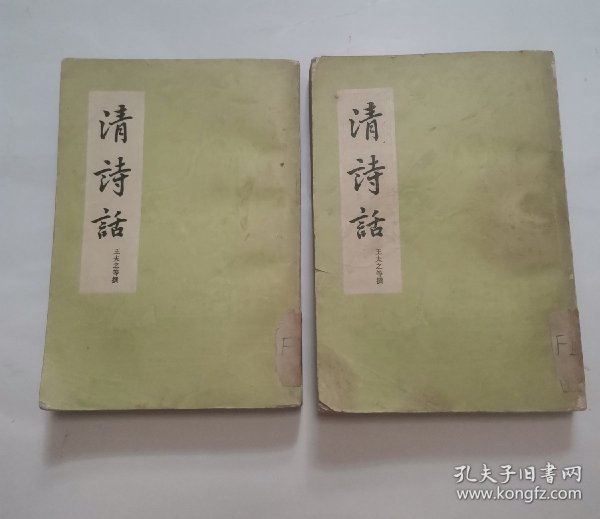 清詩話
王夫之等撰
F
清詩話
王夫之等撰
孔夫子旧书网
www.kongfz.com